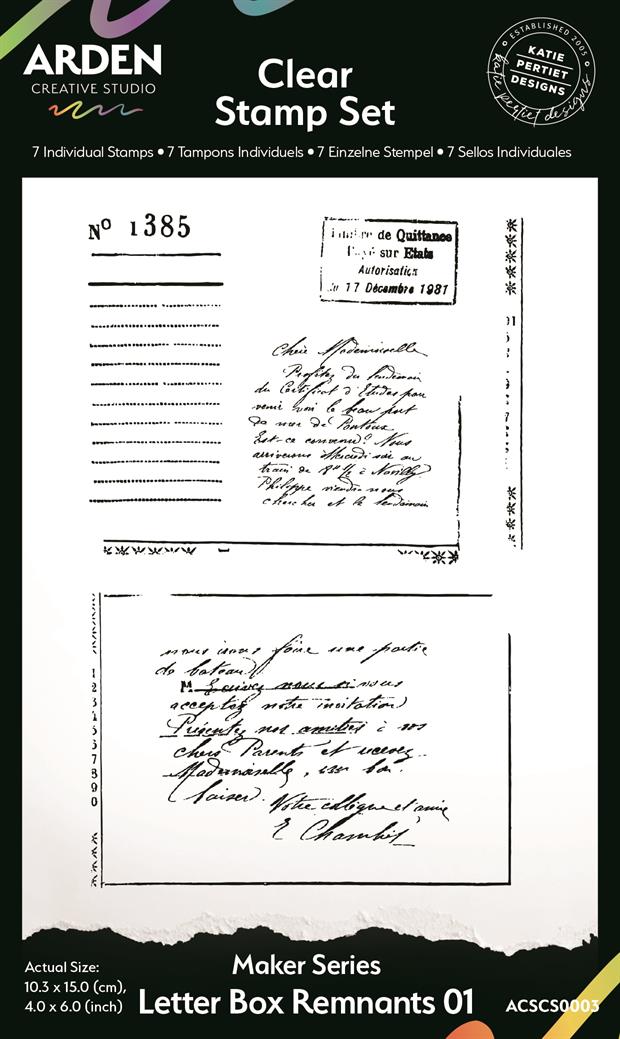 ARDEN
CREATIVE STUDIO
Clear
Stamp Set
ESTABLISHED 2005
KATIE
PERTIET
DESIGNS
katie pertiet designs
7 Individual Stamps • 7 Tampons Individuels • 7 Einzelne Stempel • 7 Sellos Individuales
Nº 1385
de Quittance
sur Etats
Autorisation
17 Décembre 1931
Chère Mademoiselle
Profitez du lendemain
du Certificat d'Etudes pour
venir voir le beau port
de mer de Pontoux
Est-ce convenu? Nous
arriverons Mercredi soir au
train de
Philippe viendra nous
chercher et le lendemain
nous irons faire une partie
de bateau
M. nous
acceptez notre invitation
Présentez nos amitiés à vos
chers Parents et recevez
Mademoiselle, un bon
baiser.
Votre collègue et amie
1
2
3
4
5
6
7
8
9
0
Actual Size:
10.3 x 15.0 (cm),
4.0 x 6.0 (inch)
Maker Series
Letter Box Remnants 01
ACSCS0003